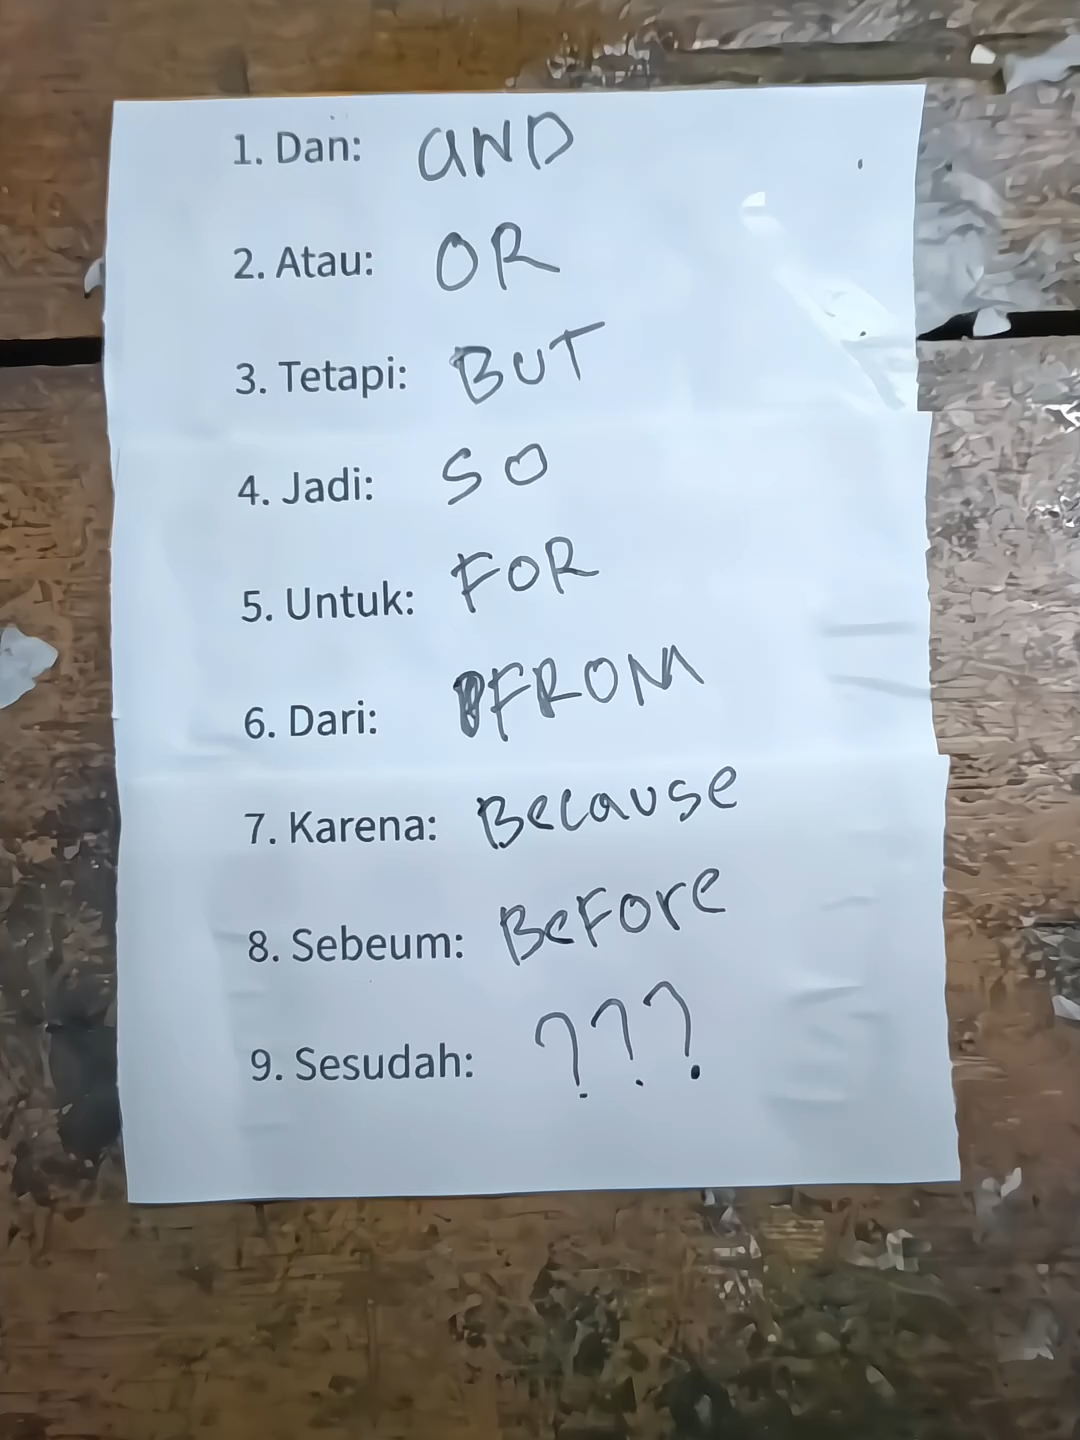 1. Dan: aND
2. Atau: OR
3. Tetapi: BUT
4. Jadi: SO
5. Untuk: FOR
6. Dari: FROM
7. Karena: Because
8. Sebeum: BeFore
9. Sesudah: ???